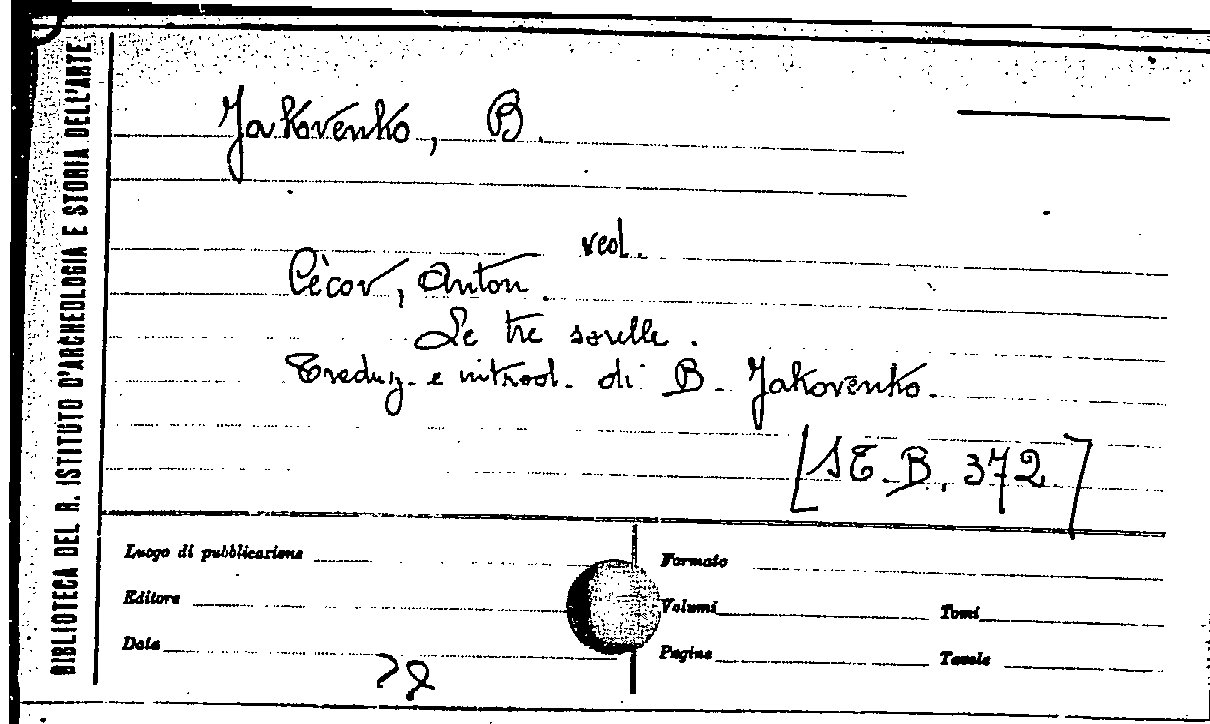 BIBLIOTECA DEL R. ISTITUTO D'ARCHEOLOGIA E STORIA DELL'ARTE
Jakovenko, B.
ved.
Cècov, Anton.
Le tre sorelle.
Traduz. e introd. di B. Jakovenko.
[ST. B. 372]
Luogo di pubblicazione
Formato
Editore
Volumi
Tomi
Data
Pagine
Tavole